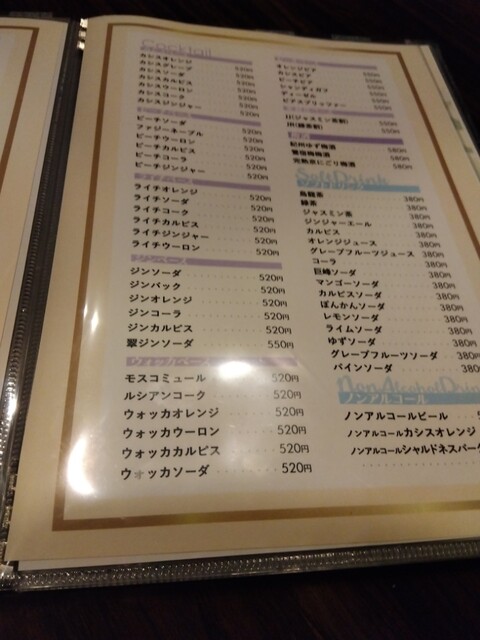 Cocktail
カシスオレンジ 520円
カシスグレープ 520円
カシスソーダ 520円
カシスカルピス 520円
カシスウーロン 520円
カシスコーク 520円
カシスジンジャー 520円
ピーチソーダ 520円
ファジーネーブル 520円
ピーチウーロン 520円
ピーチカルピス 520円
ピーチコーラ 520円
ピーチジンジャー 520円
ライチオレンジ 520円
ライチソーダ 520円
ライチコーク 520円
ライチカルピス 520円
ライチジンジャー 520円
ライチウーロン 520円
ジンベース
ジンソーダ 520円
ジンバック 520円
ジンオレンジ 520円
ジンコーラ 520円
ジンカルピス 520円
翠ジンソーダ 550円
ウォッカベース
モスコミュール 520円
ルシアンコーク 520円
ウォッカオレンジ 520円
ウォッカウーロン 520円
ウォッカカルピス 520円
ウォッカソーダ 520円
オレンジビア 550円
カシスビア 550円
ピーチビア 550円
シャンディガフ 550円
ディーゼル 550円
ビアスプリッツァー 550円
紀州ゆず梅酒 580円
580円
完熟京にごり梅酒 580円
SoftDrink
ソフトドリンク
烏龍茶 380円
緑茶 380円
ジャスミン茶 380円
ジンジャーエール 380円
カルピス 380円
オレンジジュース 380円
グレープフルーツジュース 380円
コーラ 380円
巨峰ソーダ 380円
マンゴーソーダ 380円
カルピスソーダ 380円
ぽんかんソーダ 380円
レモンソーダ 380円
ライムソーダ 380円
ゆずソーダ 380円
グレープフルーツソーダ 380円
パインソーダ 380円
NonAlcoholDrin
ノンアルコール
ノンアルコールビール
ノンアルコールカシスオレンジ
ノンアルコールシャルドネスパーク